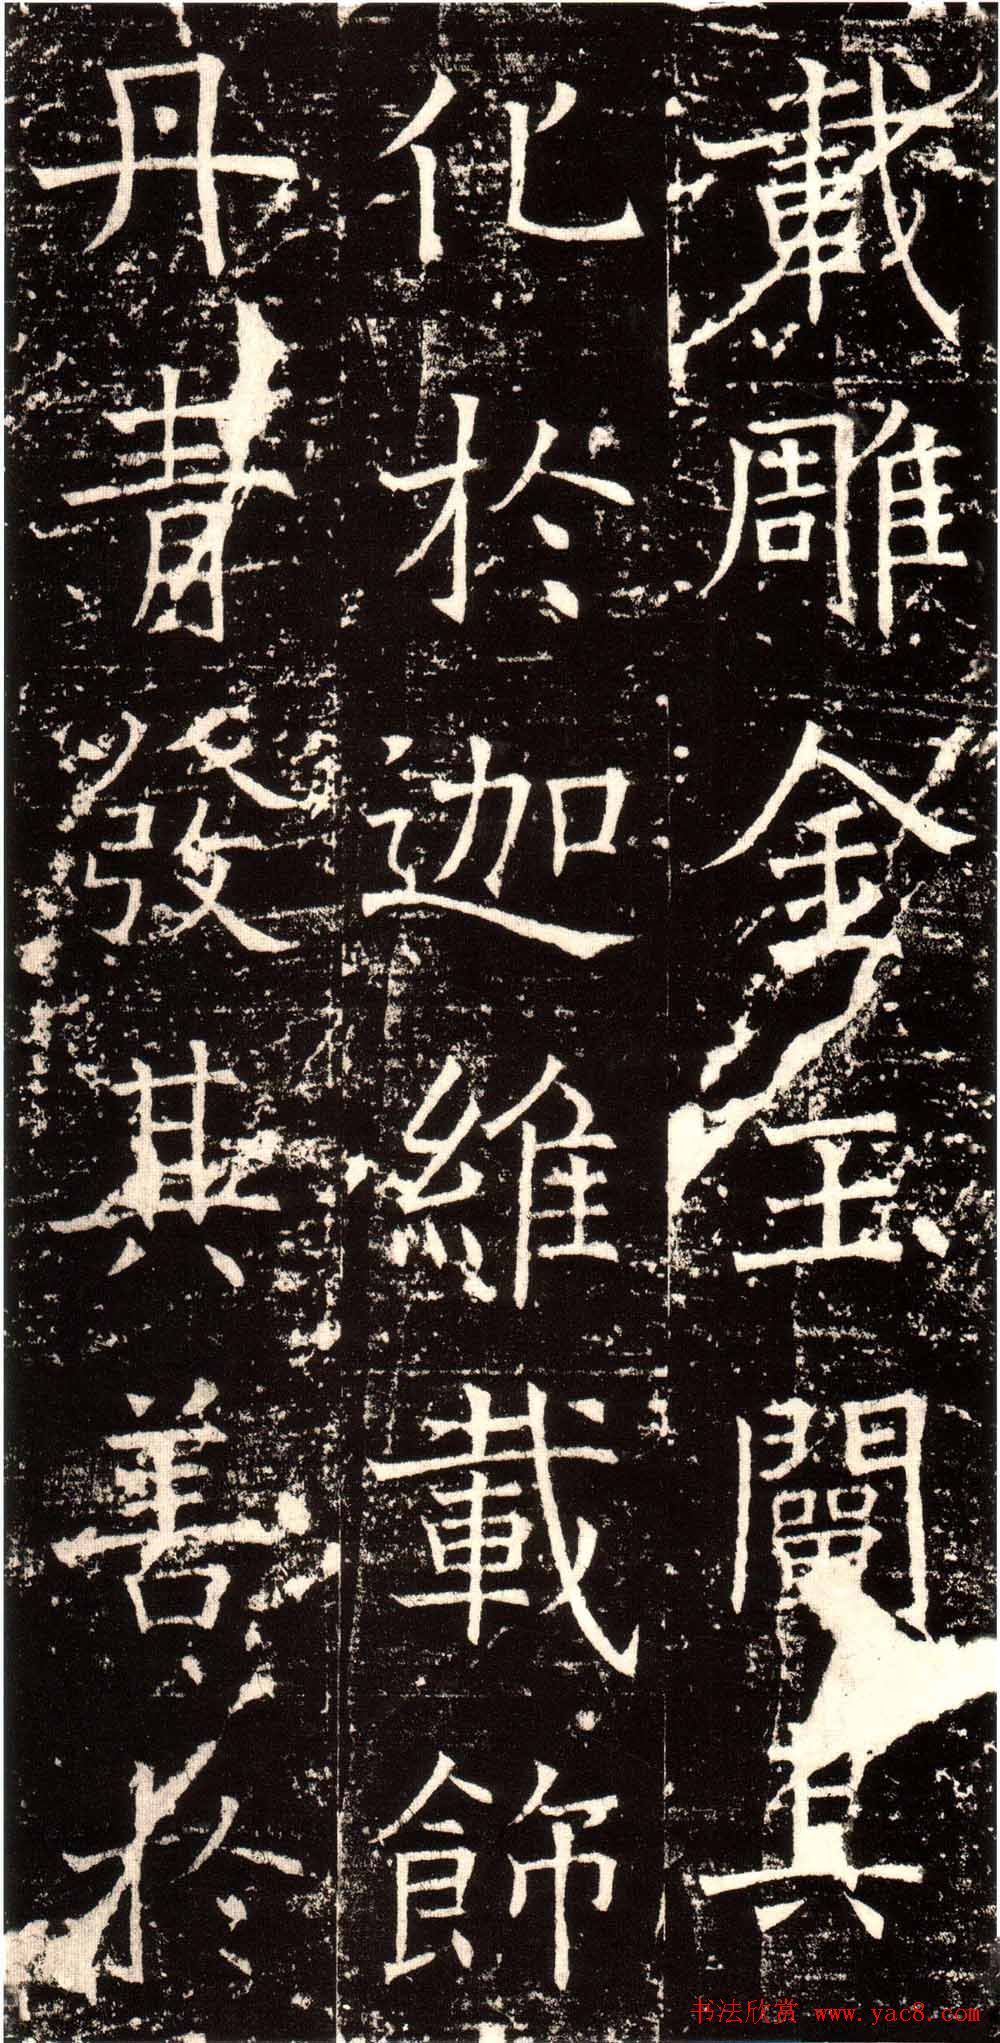 載雕金玉闡其
化於迦維載飾
丹青發其善於
书法欣赏 www.yac8.com